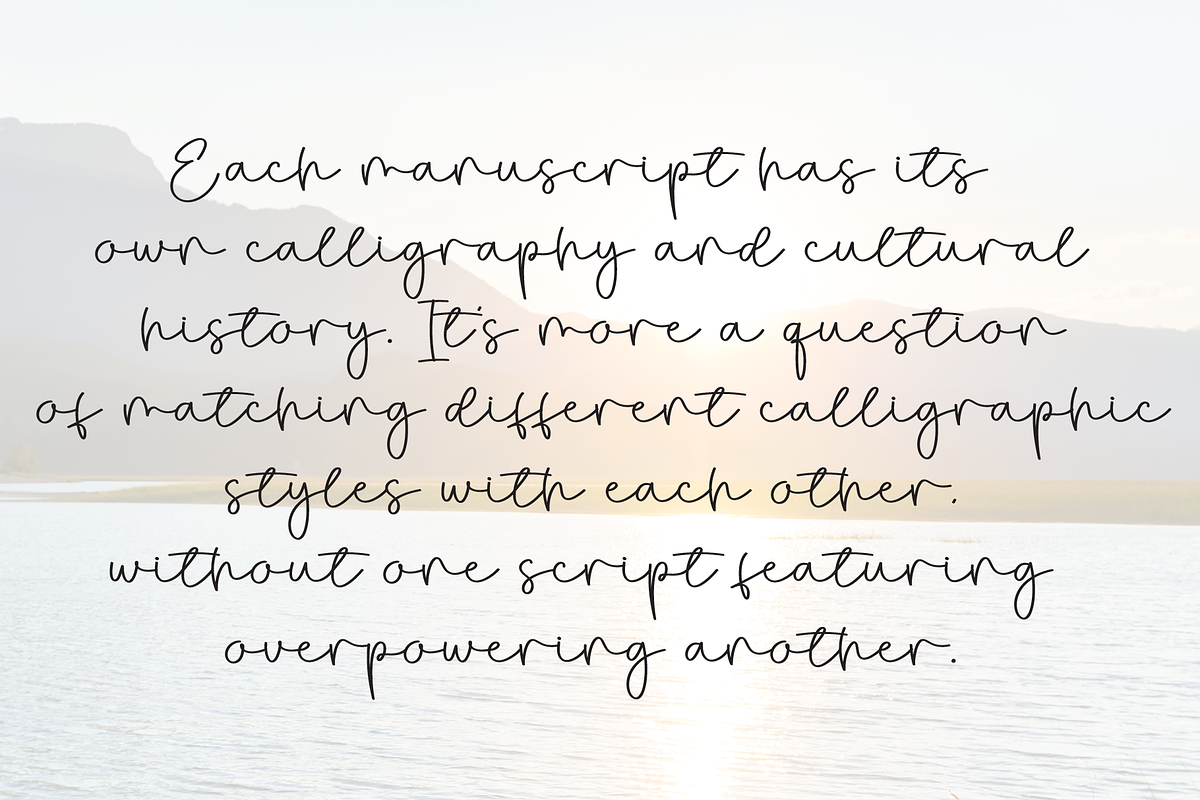 Each manuscript has its
own calligraphy and cultural
history. It's more a question
of matching different calligraphic
styles with each other.
without one script featuring
overpowering another.